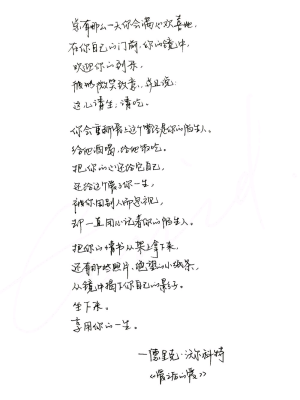 总有那么一天你会满心欢喜地,
在你自己的门前,你的镜中,
欢迎你的到来,
彼此微笑致意,并且说:
这儿请坐,请吃。
你会重新爱上这个曾经是你的陌生人。
给他酒喝,给他饭吃。
把你的心还给它自己,
还给这个爱了你一生,
被你因别人而忽视,
却一直用心记着你的陌生人。
把你的情书从架上拿下来,
还有那些照片,绝望的小纸条,
从镜中揭下你自己的影子。
坐下来。
享用你的一生。
—德里克·沃尔科特
《爱之后的爱》